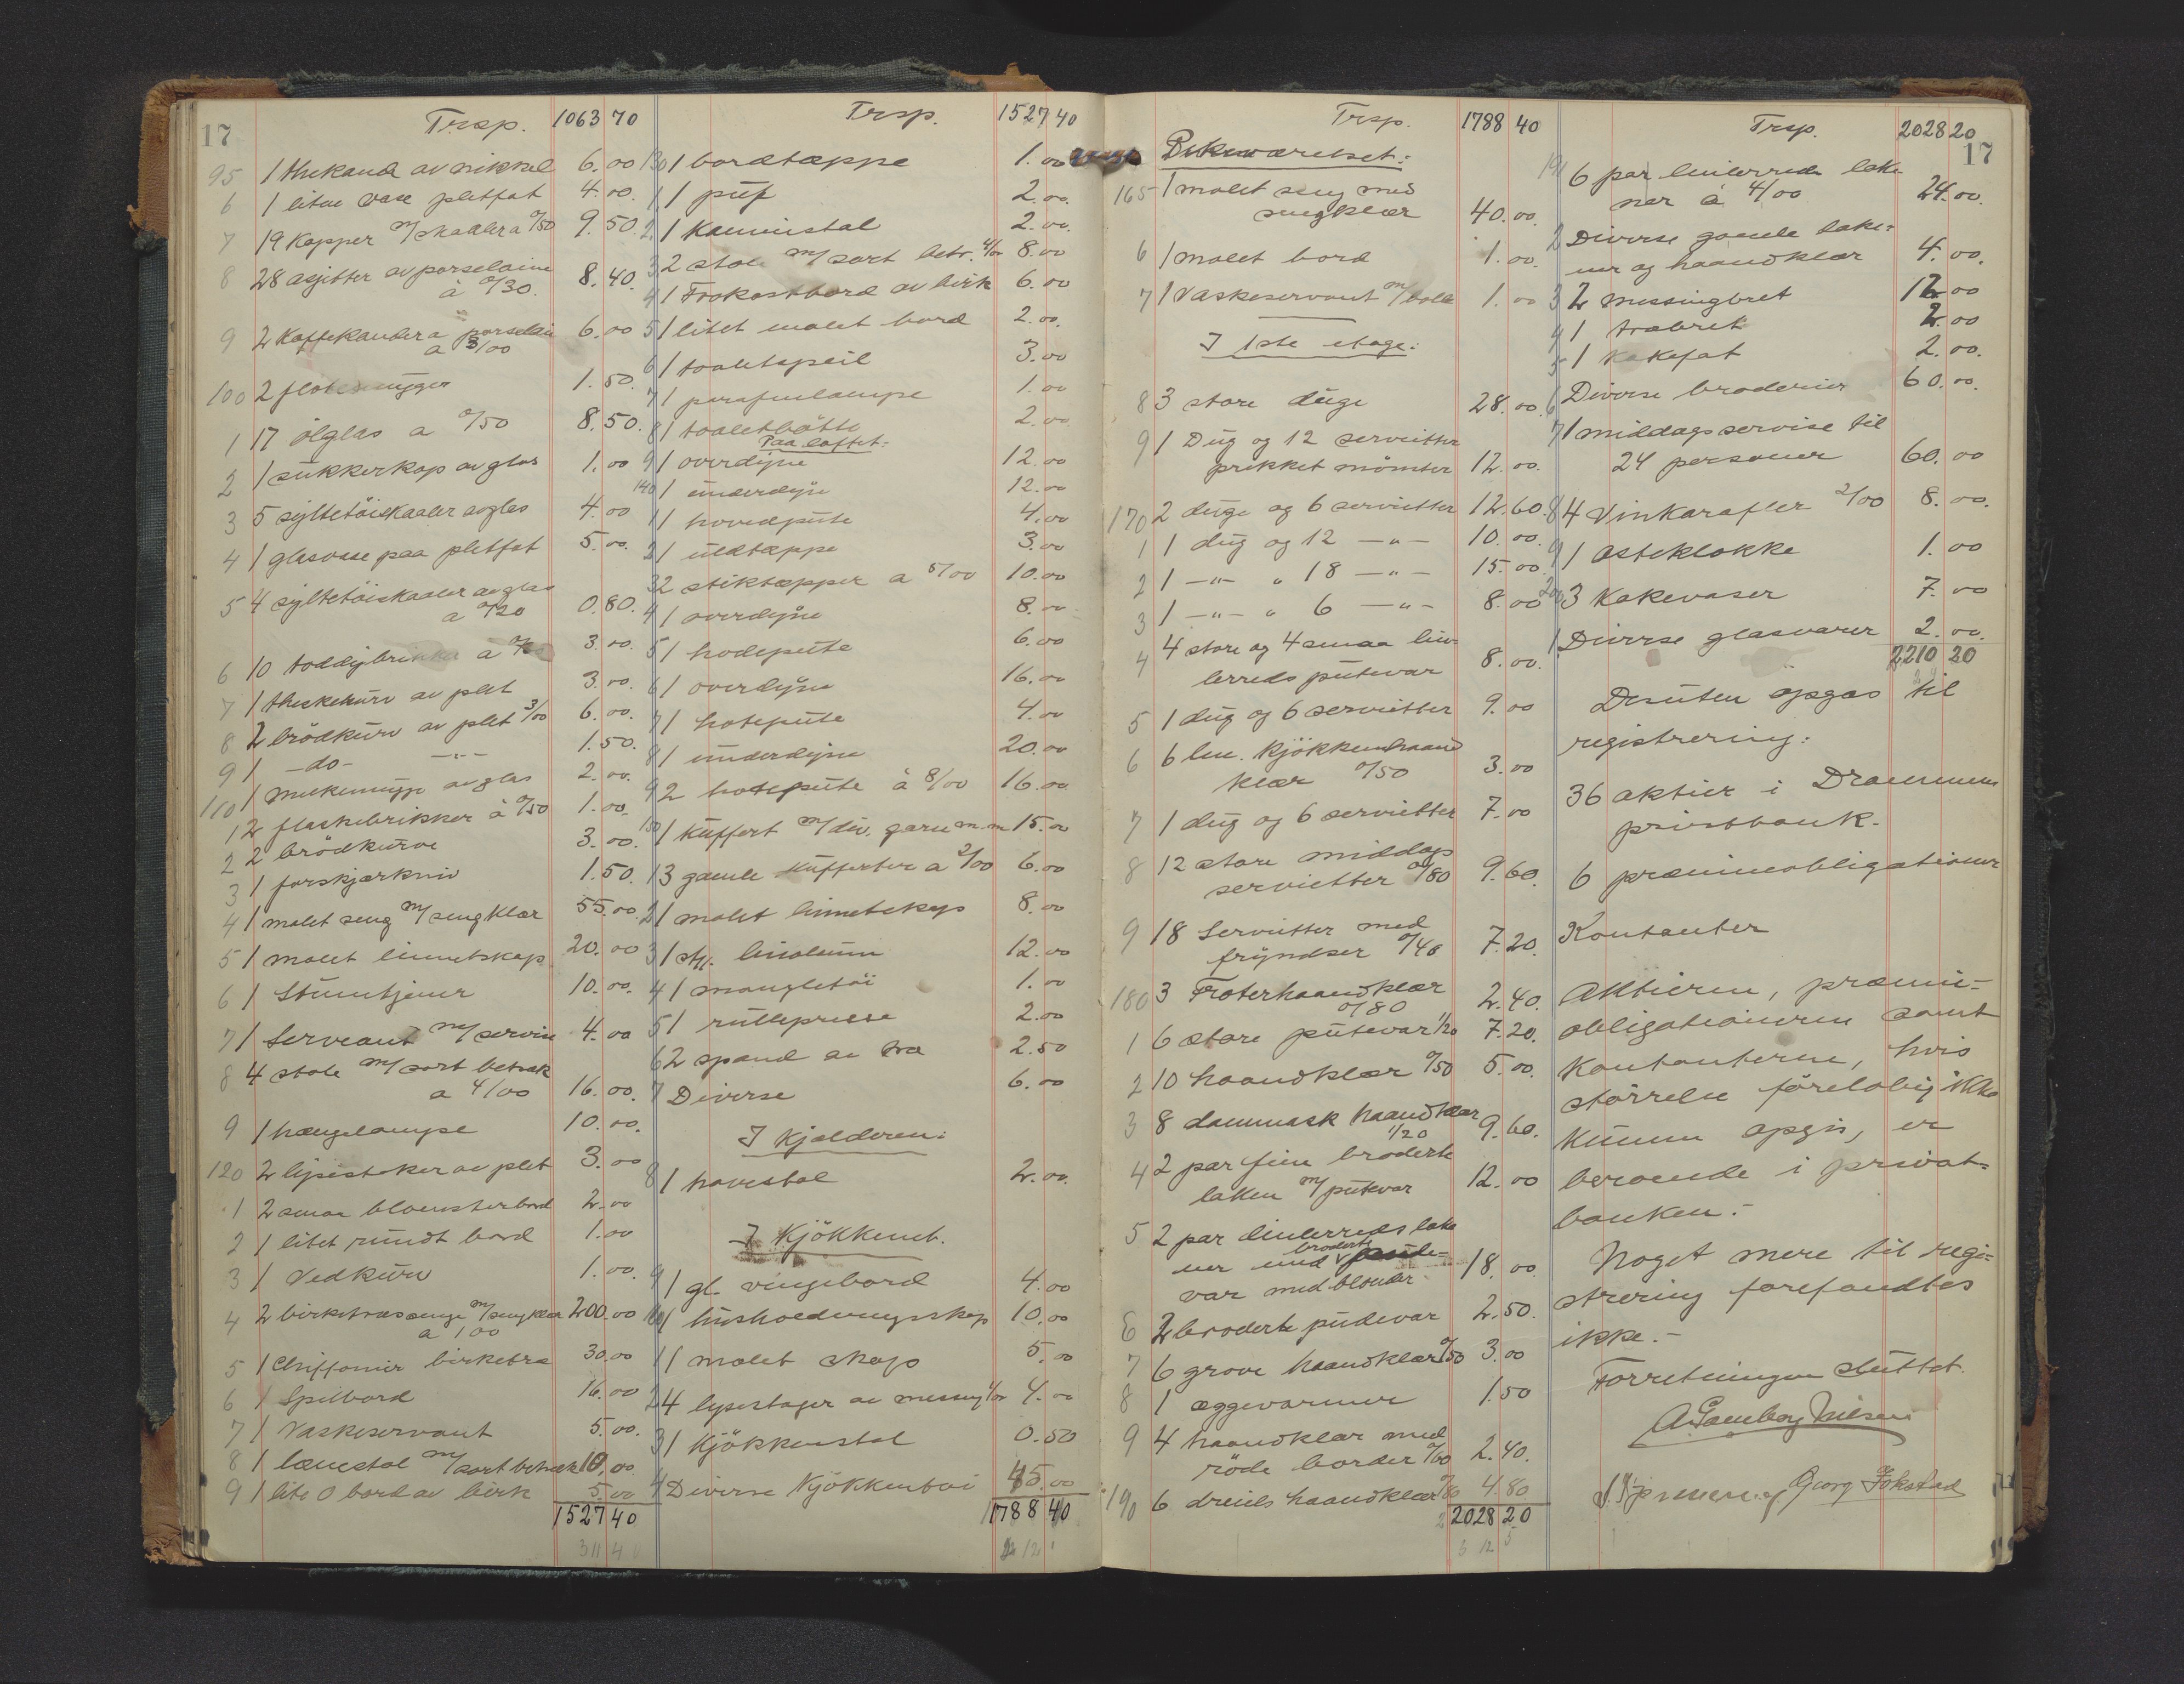 17
Trsp. 1063 70
95 1 thekande av nikkel 6.00
6 1 liten vase pletfat 4.00.
7 19 Kopper m/skaaler a 0/50 9.50.
8 28 asjetter av porselaine
à 0/30. 8.40.
9 2 Kaffekander a porselain
a 3/00 6.00
100 2 1.50.
1 17 ölglas a 0/50 8.50.
2 1 sukkerkop av glas 1.00
3 5 syltetöiskaaler avglas 4.00
4 1 glasvase paa pletfat 5.00.
5 4 syltetöiskaaler avglas
a 0/20 0.80.
6 10 toddybrikker à 3.00.
7 1 theskekurv av plet 3.00.
8 2 brödkurv av plet 3/00 6.00.
9 1 -do- -"- 1.50.
110 1 mukemugge avglas 2.00.
1 2 flaskebrikker à 0/50 1.00.
2 2 brödkurve 3.00.
3 1 forskjærkniv 1.50.
4 1 malet seng m/sengklær 55.00.
5 1 malet linnetskap 20.00
6 1 Stumtjener 10.00.
7 1 Servant m/servise 4.00
8 4 stole m/sort betræk
a 4/00 16.00.
9 1 hængelampe 10.00.
120 2 lysestaker av plet 3.00
1 2 smaa blomsterbord 2.00
2 1 litet rundt bord 1.00
3 1 Vedkurv 1.00.
4 2 birketræssenge m/sengklær 200.00
a 100
5 1 Chiffonier birketræ 30.00
6 1 Spilbord 16.00
7 1 Vaskeservant 5.00.
8 1 lænestol m/sort betræk 10.00
9 1 lite O bord av birk 5.00
1527 40
Trsp. 1527 40
130 1 bordtæppe 1.00
1 1 puf 2.00.
2 1 Kaminstol 2.00.
3 2 stole m/sort betr. 4/00 8.00
4 1 Frokostbord av birk 6.00
5 1 litet malet bord 2.00.
6 1 toaletspeil 3.00
7 1 parafinlampe 1.00
8 1 toaletbötte 2.00
Paa loftet:
9 1 overdyne 12.00
140 1 underdyne 12.00
1 1 hovedpute 4.00
2 1 uldtæppe 3.00
3 2 stiktæpper a 5/00 10.00
4 1 overdyne 8.00
5 1 hodepute 6.00
6 1 overdyne 16.00
7 1 hodepute 4.00
8 1 underdyne 20.00
9 2 hodepute à 8/00 16.00
150 1 Kuffert m/div. garn m.m 15.00
1 3 gamle Kufferter a 2/00 6.00
2 1 malet linnetskap 8.00
3 1 stk. linoleum 12.00
4 1 mangletöi 1.00
5 1 rullepresse 2.00
6 2 spand av træ 2.50
7 Diverse 6.00
I Kjelderen:
8 1 havestol 2.00.
I Kjökkenet.
9 1 gl. vingebord 4.00
160 1 husholdningsskap 10.00
1 1 malet skap 5.00
2 4 lysestager av messing 1/00 4.00
3 1 Kjökkenstol 0.50
4 Diverse Kjökkentöi 45.00
1788 40
Trsp. 1788 40
Pikeværelset:
165 1 malet seng med
sengklær 40.00.
6 1 malet bord 1.00.
7 1 Vaskeservant m/bolle 1.00
I 1ste etage:
8 3 store duge 28.00.
9 1 Dug og 12 servietter
prikket mönster 12.00.
170 2 duge og 6 servietter 12.60.
1 1 dug og 12 -"- 10.00.
2 1 -"- " 18 -"- 15.00.
3 1 -"- " 6 -"- 8.00
4 4 store og 4 smaa lin-
lerreds putevar 8.00.
5 1 dug og 6 servietter 9.00
6 6 lin. Kjökkenhaand
klær 0/50 3.00
7 1 dug og 6 servietter 7.00
8 12 store middags
servietter 0/80 9.60.
9 18 Servietter med
fryndser 0/40 7.20.
180 3 Froterhaandklær
0/80 2.40.
1 6 store putevar 1/20 7.20.
2 10 haandklær 0/50 5.00.
3 8 dammask haandklær
1/20 9.60.
4 2 par fine broderte
laken m/putevar 12.00
5 2 par linlerreds lake
ner med broderte
var med blonder 18.00
6 2 broderte pudevar 2.50.
7 6 grove haandklær 0/50 3.00
8 1 æggevarmer 1.50
9 4 haandklær med
röde border 0/60 2.40.
190 6 dreiels haandklær 0/80 4.80
2028 20
Trsp. 2028 20
17
191 6 par linlerreds lake
ner à 4/00 24.00.
2 Diverse gamle lake-
ner og haandklær 4.00.
3 2 messingbret 12.00
4 1 træbret 2.00
5 1 kakefat 2.00.
6 Diverse broderier 60.00.
7 1 middagsservise til
24 personer 60.00
8 4 Vinkarafler 2/00 8.00.
9 1 Osteklokke 1.00
200 3 Kakevaser 7.00
1 Diverse glasvarer 2.00.
2210 20
Desuten opgaes til
registrering:
36 aktier i Drammens
privatbank.
6 præmieobligationer
Kontanter
Aktierne, præmie-
obligationerne samt
Kontanterne, hvis
störrelse foreløbig ikke
kunne opgis, er
beroende i privat-
banken.-
Noget mere til regi-
strering forefandtes
ikke.-
Forretningen sluttet.
Nilsen
Georg Fokstad